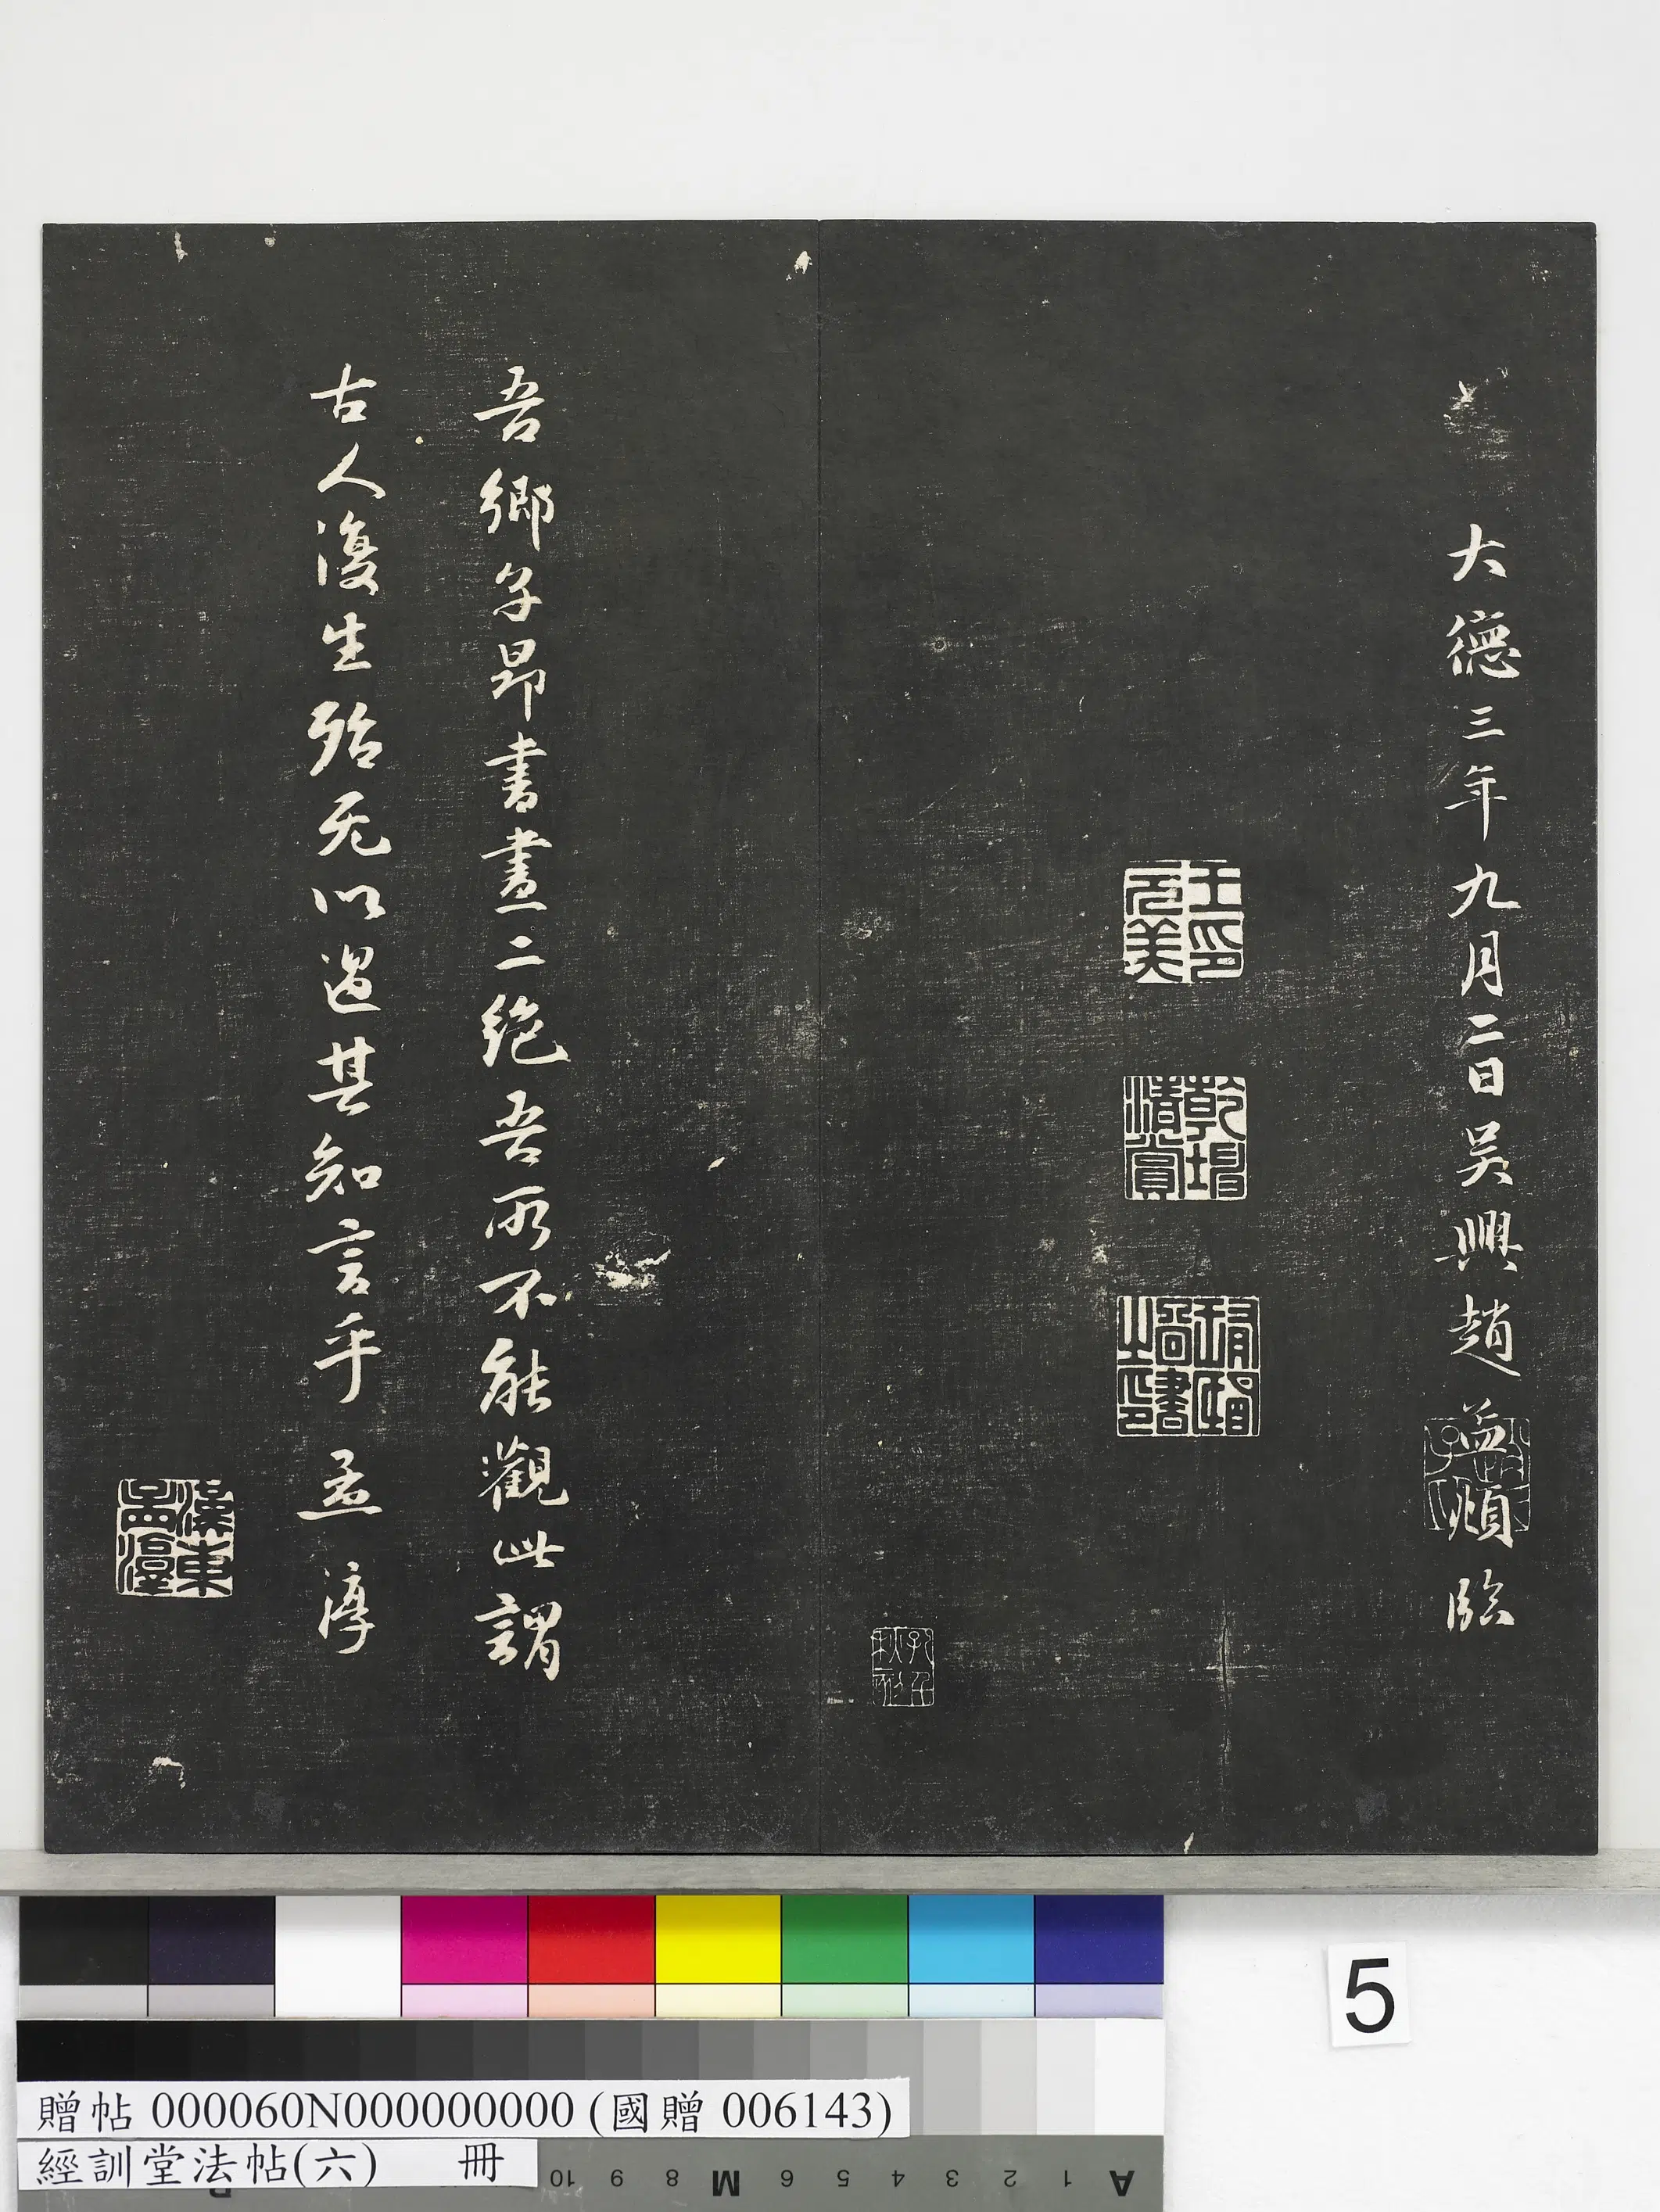 大德三年九月二日吳興趙孟頫臨
王印元美
乾坤清賞
吾鄉子昂書畫二絕吾所不能觀此謂
古人復生殆无以過其知言乎 孟淳
漢東孟淳
5
贈帖 000060N000000000 (國贈 006143)
經訓堂法帖(六) 冊
10 9 8 M 6 5 4 3 2 1 A